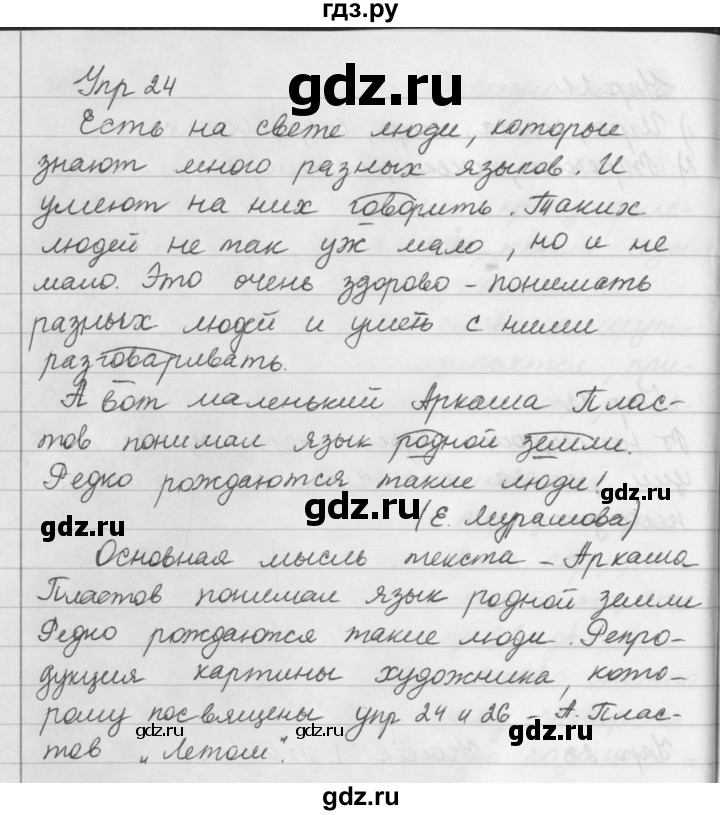 гдз.ру
gdz.ru
Упр 24
Есть на свете люди, которые
знают много разных языков. И
умеют на них говорить. Таких
людей не так уж мало, но и не
мало. Это очень здорово - понимать
разных людей и уметь с ними
разговаривать.
А вот маленький Аркаша Плас-
тов понимал язык родной земли.
Редко рождаются такие люди!
gdz.ru
gdz.ru
gdz.ru
(Е. Мурашова)
Основная мысль текста - Аркаша
Пластов понимал язык родной земли
Редно рождаются такие люди. Репро-
дукция картины художника, кото-
рому посвящены упр 24 и 26 - А. Плас-
gdz.ru
gdz.ru
gdz.ru
тов "Летом".
gdz.ru